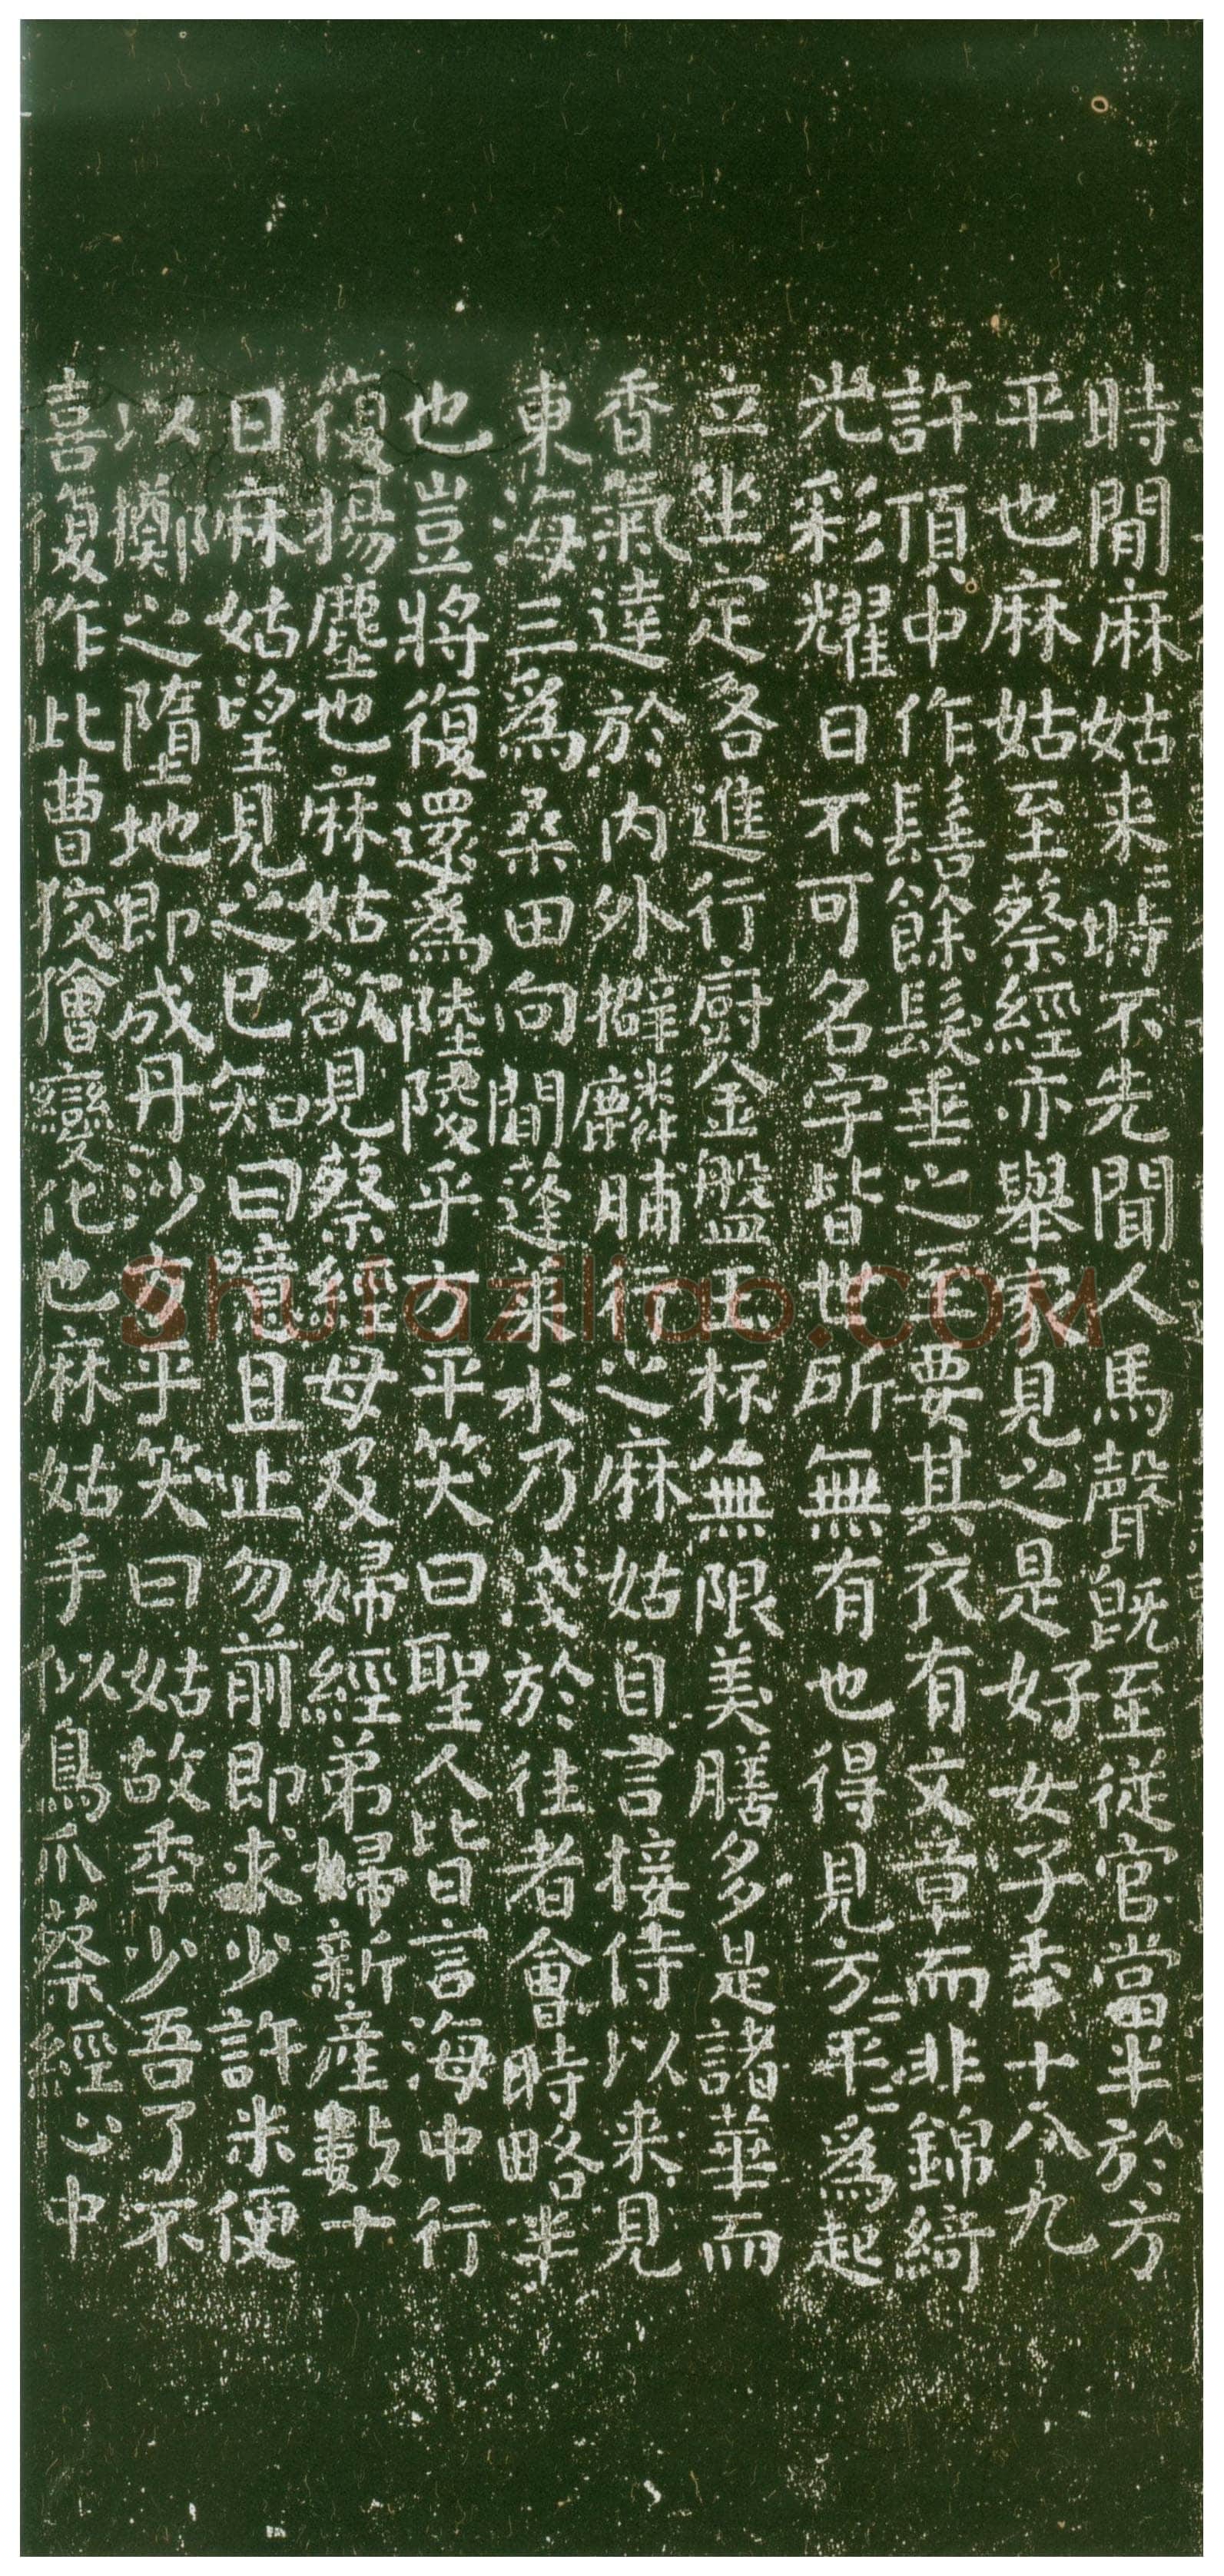 時間麻姑来=時不先聞人馬聲旣至從官當半於方
平也麻姑至蔡經亦舉家見之是好女子季十八九
許頂中作髻餘髮垂之至要其衣有文章而非錦綺
光彩耀日不可名字皆世所無有也得見方=平=爲起
立坐定各進行厨金盤玉杯無限美膳多是諸華而
香氣達於内外擗麟脯行之麻姑自言接侍以来見
東海三爲桑田向間蓬萊水乃淺於往者會時略半
也豈將復還爲陸陵乎方平笑曰聖人皆言海中行
復揚塵也麻姑欲見蔡經母及婦經弟婦新產數十
日麻姑望見之已知曰噫且止勿前即求少許米便
以擲之墮地即成丹沙方平笑曰姑故季少吾了不
喜復作此曹狡獪變化也麻姑手似鳥爪蔡經心中
Shufaziliao.com